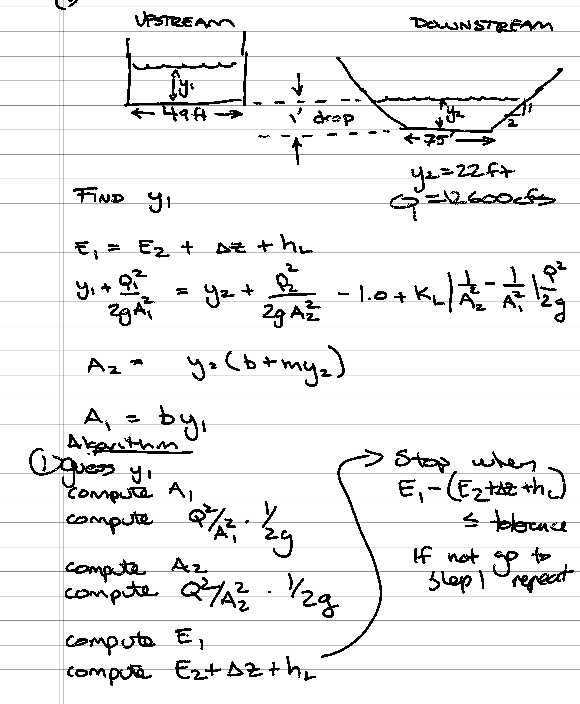 UPSTREAM
DOWNSTREAM
y₁
49ft
1' drop
y₂
1
2
75'
y₂=22ft
Q=12600cfs
FIND y₁
E₁ = E₂ + Δz + hL
y₁ + Q₁²/2gA₁² = y₂ + Q₂²/2gA₂² - 1.0 + KL |1/A₂² - 1/A₁²| Q²/2g
A₂ = y₂(b+my₂)
A₁ = by₁
Algorithm
① guess y₁
compute A₁
compute Q²/A₁² · 1/2g
compute A₂
compute Q²/A₂² · 1/2g
compute E₁
compute E₂+ΔZ+hL
Stop when
E₁-(E₂+ΔZ+hL)
≤ tolerance
If not go to
step 1 repeat